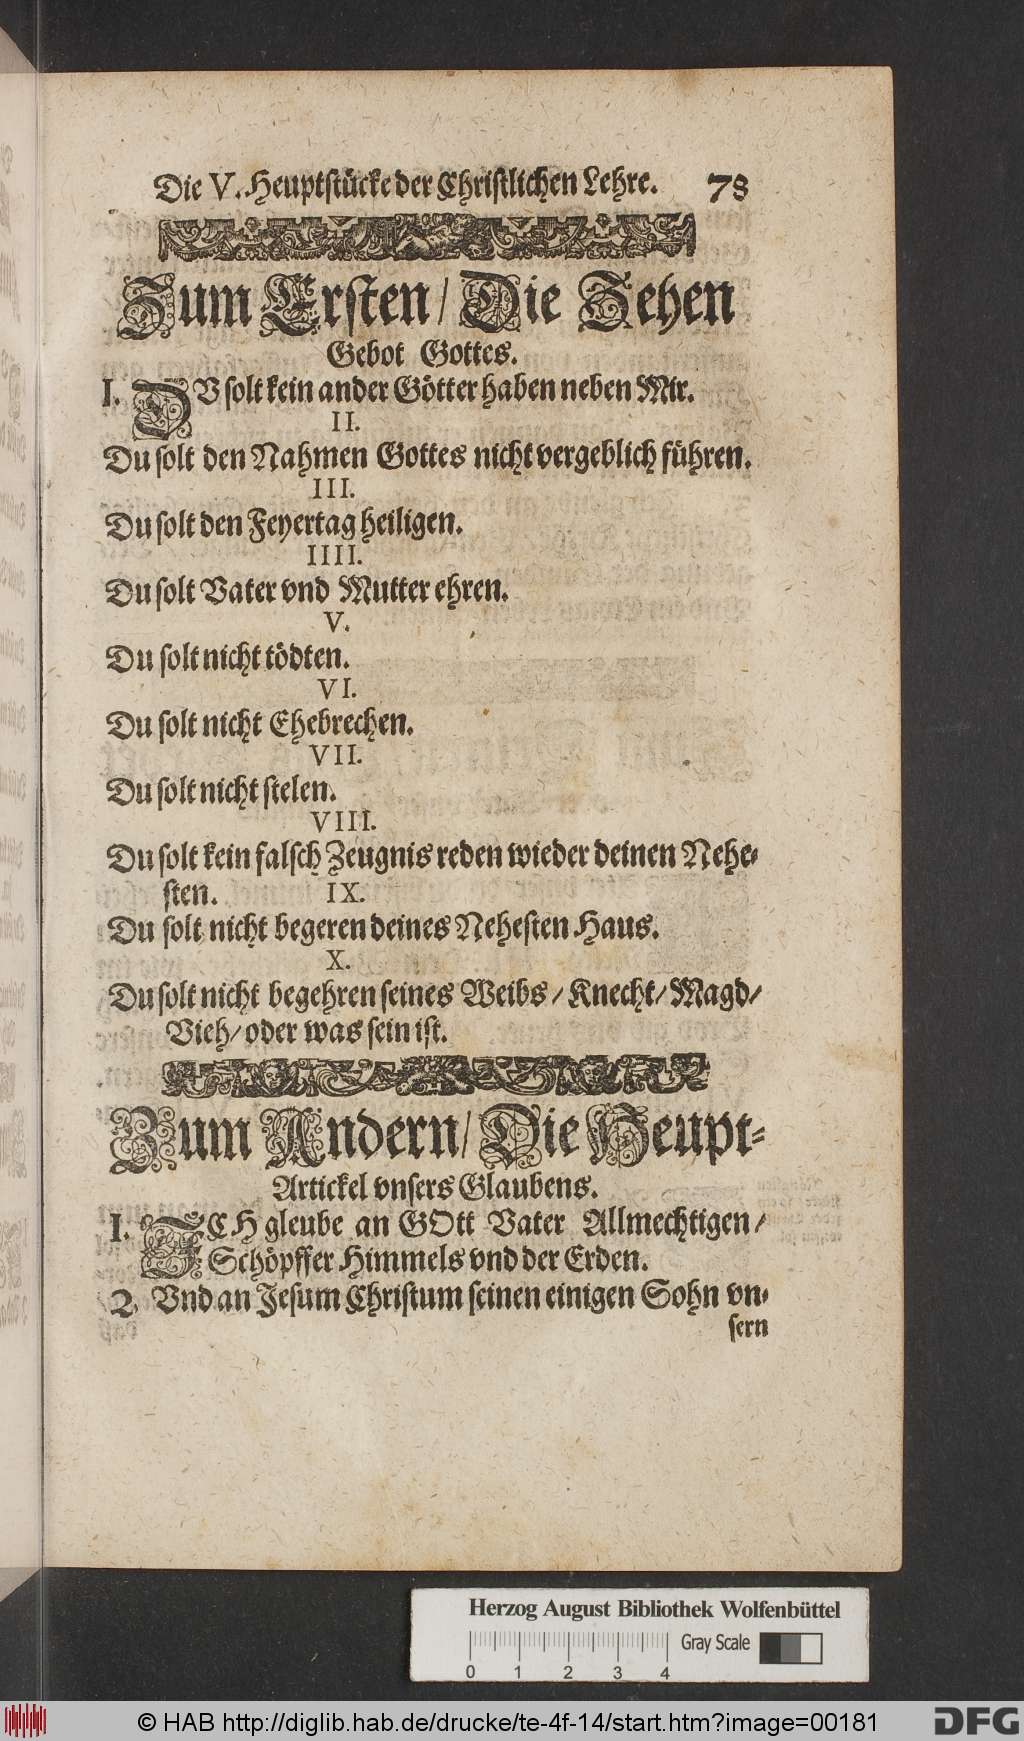 Die V. Heuptstücke der Christlichen Lehre. 78
Zum Ersten / Die Zehen
Gebot Gottes.
I. DV solt kein ander Götter haben neben Mir.
II.
Du solt den Nahmen Gottes nicht vergeblich führen.
III.
Du solt den Feyertag heiligen.
IIII.
Du solt Vater vnd Mutter ehren.
V.
Du solt nicht tödten.
VI.
Du solt nicht Ehebrechen.
VII.
Du solt nicht stelen.
VIII.
Du solt kein falsch Zeugnis reden wieder deinen Nehe-
sten. IX.
Du solt nicht begeren deines Nehesten Haus.
X.
Du solt nicht begehren seines Weibs / Knecht / Magd /
Vieh / oder was sein ist.
Zum Andern / Die Heupt-
Artickel vnsers Glaubens.
I. ICH gleube an GOtt Vater Allmechtigen /
Schöpffer Himmels vnd der Erden.
2. Vnd an Jesum Christum seinen einigen Sohn vn-
sern
Herzog August Bibliothek Wolfenbüttel
Gray Scale
0 1 2 3 4
© HAB http://diglib.hab.de/drucke/te-4f-14/start.htm?image=00181
DFG